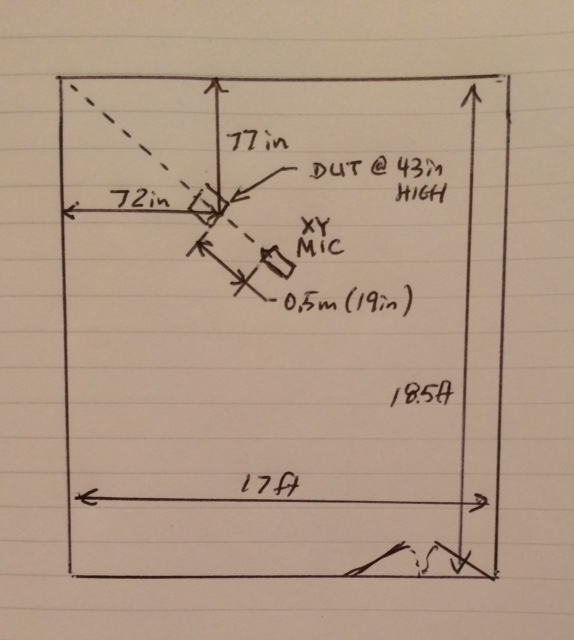 77in
DUT @ 43in
HIGH
72in
XY
MIC
0.5m (19in)
18.5ft
17ft